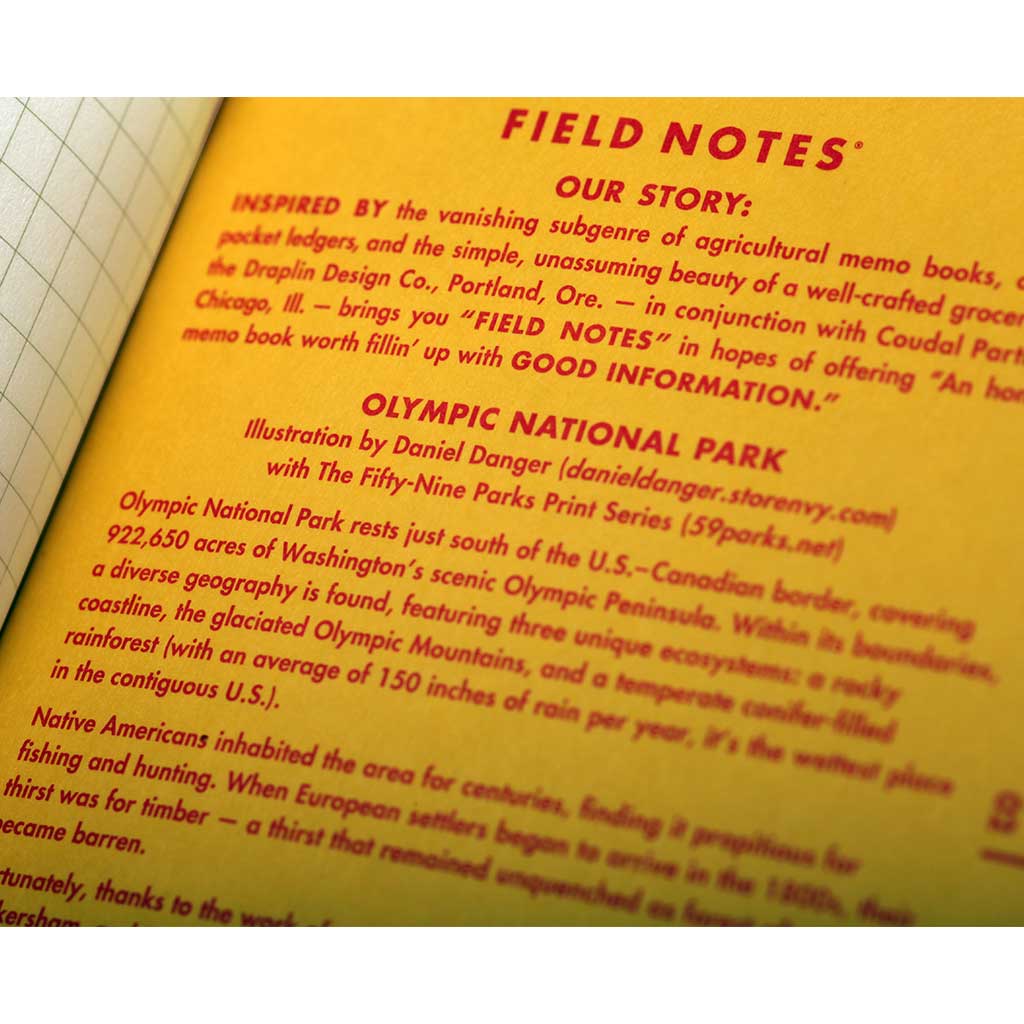 FIELD NOTES®
OUR STORY:
INSPIRED BY the vanishing subgenre of agricultural memo books,
pocket ledgers, and the simple, unassuming beauty of a well-crafted grocer
the Draplin Design Co., Portland, Ore. — in conjunction with Coudal Part
Chicago, Ill. — brings you “FIELD NOTES” in hopes of offering “An hon
memo book worth fillin’ up with GOOD INFORMATION.”
OLYMPIC NATIONAL PARK
Illustration by Daniel Danger (danieldanger.storenvy.com)
with The Fifty-Nine Parks Print Series (59parks.net)
Olympic National Park rests just south of the U.S.–Canadian border, covering
922,650 acres of Washington’s scenic Olympic Peninsula. Within its boundaries,
a diverse geography is found, featuring three unique ecosystems: a rocky
coastline, the glaciated Olympic Mountains, and a temperate conifer-filled
rainforest (with an average of 150 inches of rain per year, it’s the wettest place
in the contiguous U.S.).
Native Americans inhabited the area for centuries, finding it propitious for
fishing and hunting. When European settlers began to arrive in the 1800s, their
thirst was for timber — a thirst that remained unquenched as forest
became barren.
rtunately, thanks to the work of
kersham